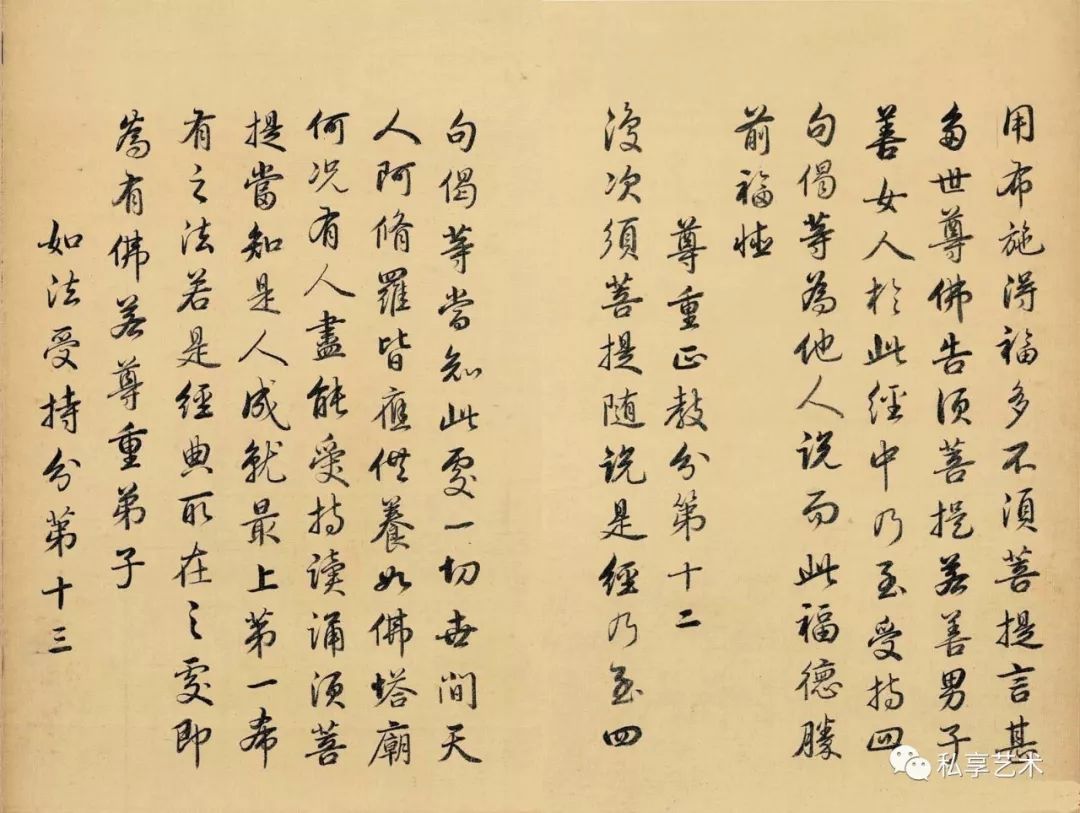 用布施得福多不須菩提言甚
多世尊佛告須菩提若善男子
善女人於此經中乃至受持四
句偈等為他人說而此福德勝
前福德
尊重正教分第十二
復次須菩提隨說是經乃至四
句偈等當知此處一切世間天
人阿脩羅皆應供養如佛塔廟
何况有人盡能受持讀誦須菩
提當知是人成就最上第一希
有之法若是經典所在之處即
為有佛若尊重弟子
如法受持分第十三
私享艺术